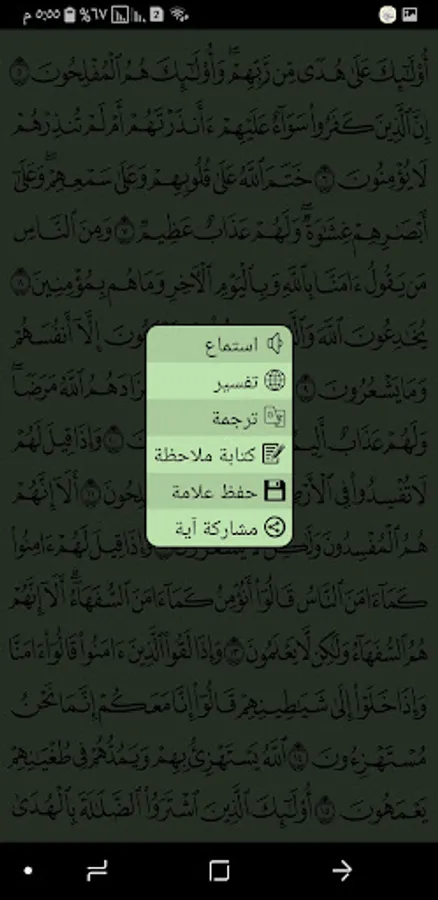 ٥:٥٥ م ٦٧%
أُوْلَٰٓئِكَ عَلَىٰ هُدًى مِّن رَّبِّهِمْ ۖ وَأُوْلَٰٓئِكَ هُمُ ٱلْمُفْلِحُونَ ۝٥
إِنَّ ٱلَّذِينَ كَفَرُوا۟ سَوَآءٌ عَلَيْهِمْ ءَأَنذَرْتَهُمْ أَمْ لَمْ تُنذِرْهُمْ
لَا يُؤْمِنُونَ ۝٦ خَتَمَ ٱللَّهُ عَلَىٰ قُلُوبِهِمْ وَعَلَىٰ سَمْعِهِمْ ۖ وَعَلَىٰٓ
أَبْصَٰرِهِمْ غِشَٰوَةٌ ۖ وَلَهُمْ عَذَابٌ عَظِيمٌ ۝٧ وَمِنَ ٱلنَّاسِ
مَن يَقُولُ ءَامَنَّا بِٱللَّهِ وَبِٱلْيَوْمِ ٱلْءَاخِرِ وَمَا هُم بِمُؤْمِنِينَ ۝٨
يُخَٰدِعُونَ ٱللَّهَ إِلَّآ أَنفُسَهُمْ
وَمَا يَشْعُرُونَ ۝٩ ٱللَّهُ مَرَضًا ۖ
وَلَهُمْ عَذَابٌ وَإِذَا قِيلَ لَهُمْ
لَا تُفْسِدُوا۟ فِى ۝١١ أَلَآ إِنَّهُمْ
هُمُ ٱلْمُفْسِدُونَ وَإِذَا قِيلَ لَهُمْ ءَامِنُوا۟
كَمَآ ءَامَنَ ٱلنَّاسُ قَالُوٓا۟ أَنُؤْمِنُ كَمَآ ءَامَنَ ٱلسُّفَهَآءُ ۗ أَلَآ إِنَّهُمْ
هُمُ ٱلسُّفَهَآءُ وَلَٰكِن لَّا يَعْلَمُونَ ۝١٣ وَإِذَا لَقُوا۟ ٱلَّذِينَ ءَامَنُوا۟ قَالُوٓا۟ ءَامَنَّا
وَإِذَا خَلَوْا۟ إِلَىٰ شَيَٰطِينِهِمْ قَالُوٓا۟ إِنَّا مَعَكُمْ إِنَّمَا نَحْنُ
مُسْتَهْزِءُونَ ۝١٤ ٱللَّهُ يَسْتَهْزِئُ بِهِمْ وَيَمُدُّهُمْ فِى طُغْيَٰنِهِمْ
يَعْمَهُونَ ۝١٥ أُوْلَٰٓئِكَ ٱلَّذِينَ ٱشْتَرَوُا۟ ٱلضَّلَٰلَةَ بِٱلْهُدَىٰ
استماع
تفسير
ترجمة
كتابة ملاحظة
حفظ علامة
مشاركة آية